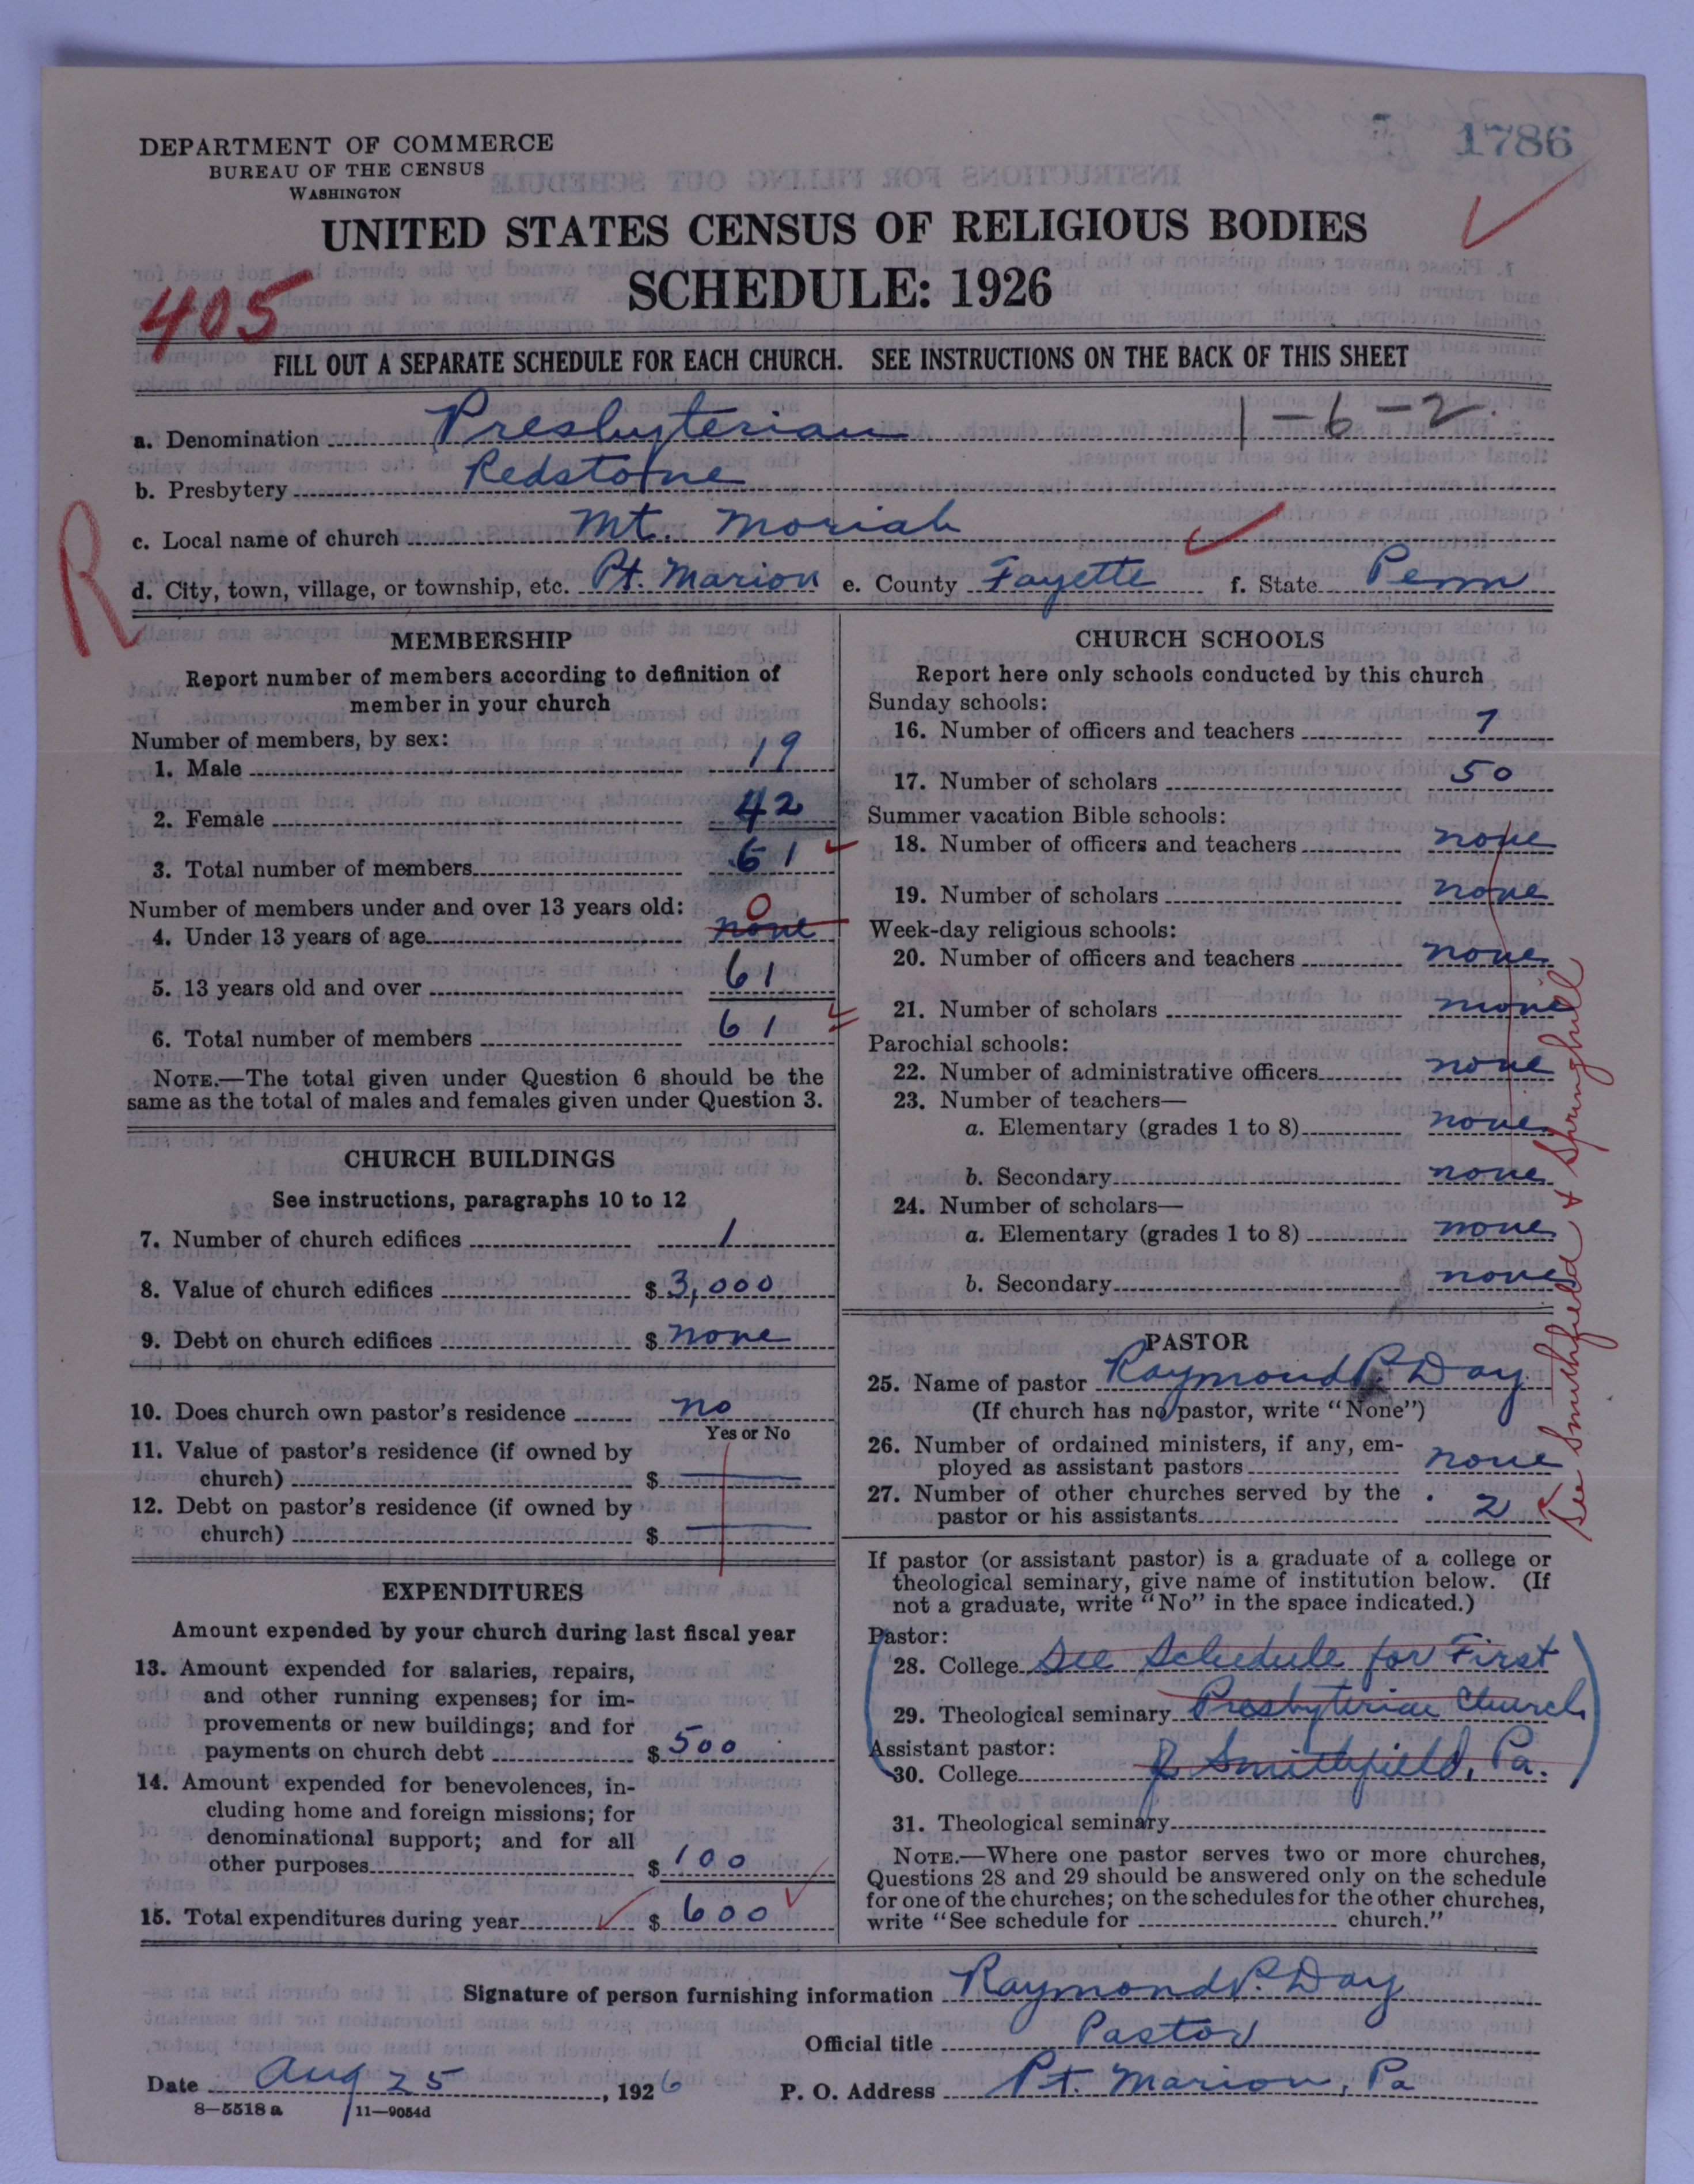 1786
DEPARTMENT OF COMMERCE
BUREAU OF THE CENSUS
WASHINGTON
UNITED STATES CENSUS OF RELIGIOUS BODIES
SCHEDULE: 1926
405
FILL OUT A SEPARATE SCHEDULE FOR EACH CHURCH. SEE INSTRUCTIONS ON THE BACK OF THIS SHEET
a. Denomination Presbyterian 1-6-2.
b. Presbytery Redstone
R
c. Local name of church Mt. Moriah
d. City, town, village, or township, etc. Pt. Marion e. County Fayette f. State Penn
MEMBERSHIP
Report number of members according to definition of
member in your church
Number of members, by sex:
1. Male 19
2. Female 42
3. Total number of members 61
Number of members under and over 13 years old:
0
4. Under 13 years of age none
5. 13 years old and over 61
6. Total number of members 61
NOTE.—The total given under Question 6 should be the
same as the total of males and females given under Question 3.
CHURCH BUILDINGS
See instructions, paragraphs 10 to 12
7. Number of church edifices 1
8. Value of church edifices $ 3,000
9. Debt on church edifices $ none
10. Does church own pastor's residence no
Yes or No
11. Value of pastor's residence (if owned by
church) $
12. Debt on pastor's residence (if owned by
church) $
EXPENDITURES
Amount expended by your church during last fiscal year
13. Amount expended for salaries, repairs,
and other running expenses; for im-
provements or new buildings; and for
payments on church debt $ 500
14. Amount expended for benevolences, in-
cluding home and foreign missions; for
denominational support; and for all
other purposes $ 100
15. Total expenditures during year $ 600
CHURCH SCHOOLS
Report here only schools conducted by this church
Sunday schools:
16. Number of officers and teachers 7
17. Number of scholars 50
Summer vacation Bible schools:
18. Number of officers and teachers none
19. Number of scholars none
Week-day religious schools:
20. Number of officers and teachers none
21. Number of scholars none
Parochial schools:
22. Number of administrative officers none
23. Number of teachers—
a. Elementary (grades 1 to 8) none
b. Secondary none
24. Number of scholars—
a. Elementary (grades 1 to 8) none
b. Secondary none
See Smithfield & Springhill
PASTOR
25. Name of pastor Raymond P. Day
(If church has no pastor, write "None")
26. Number of ordained ministers, if any, em-
ployed as assistant pastors none
27. Number of other churches served by the
pastor or his assistants 2
If pastor (or assistant pastor) is a graduate of a college or
theological seminary, give name of institution below. (If
not a graduate, write "No" in the space indicated.)
Pastor:
28. College See Schedule for First
29. Theological seminary Presbyterian Church
Assistant pastor:
30. College Smithfield, Pa.
31. Theological seminary
NOTE.—Where one pastor serves two or more churches,
Questions 28 and 29 should be answered only on the schedule
for one of the churches; on the schedules for the other churches,
write "See schedule for church."
Signature of person furnishing information Raymond P. Day
Official title Pastor
Date Aug 25, 1926 P. O. Address Pt. Marion, Pa
8—5518 a 11—9054d